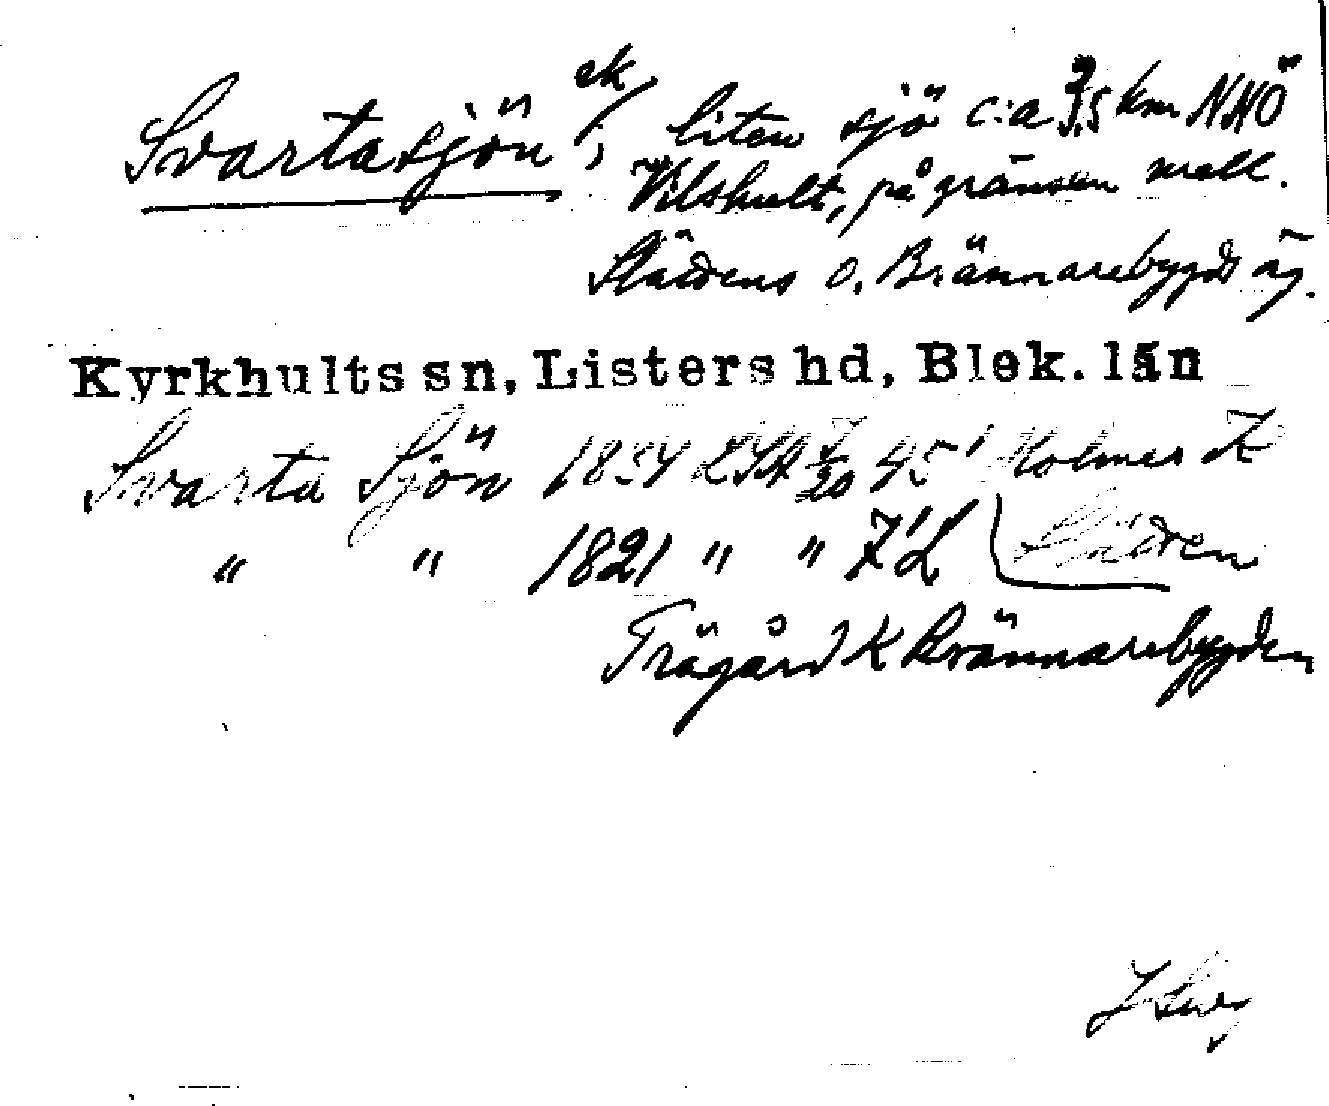 Svartasjön ek, liten sjö c:a 3,5 km NNÖ
Vilshult, på gränsen mell.
Slädens o. Brännarebygds äg.
Kyrkhults sn, Listers hd, Blek. län
Svarta Sjön 1854 LSA 45' Holmer K
" " 1821 " " Z'L Släden
Trägård K Brännarebygden